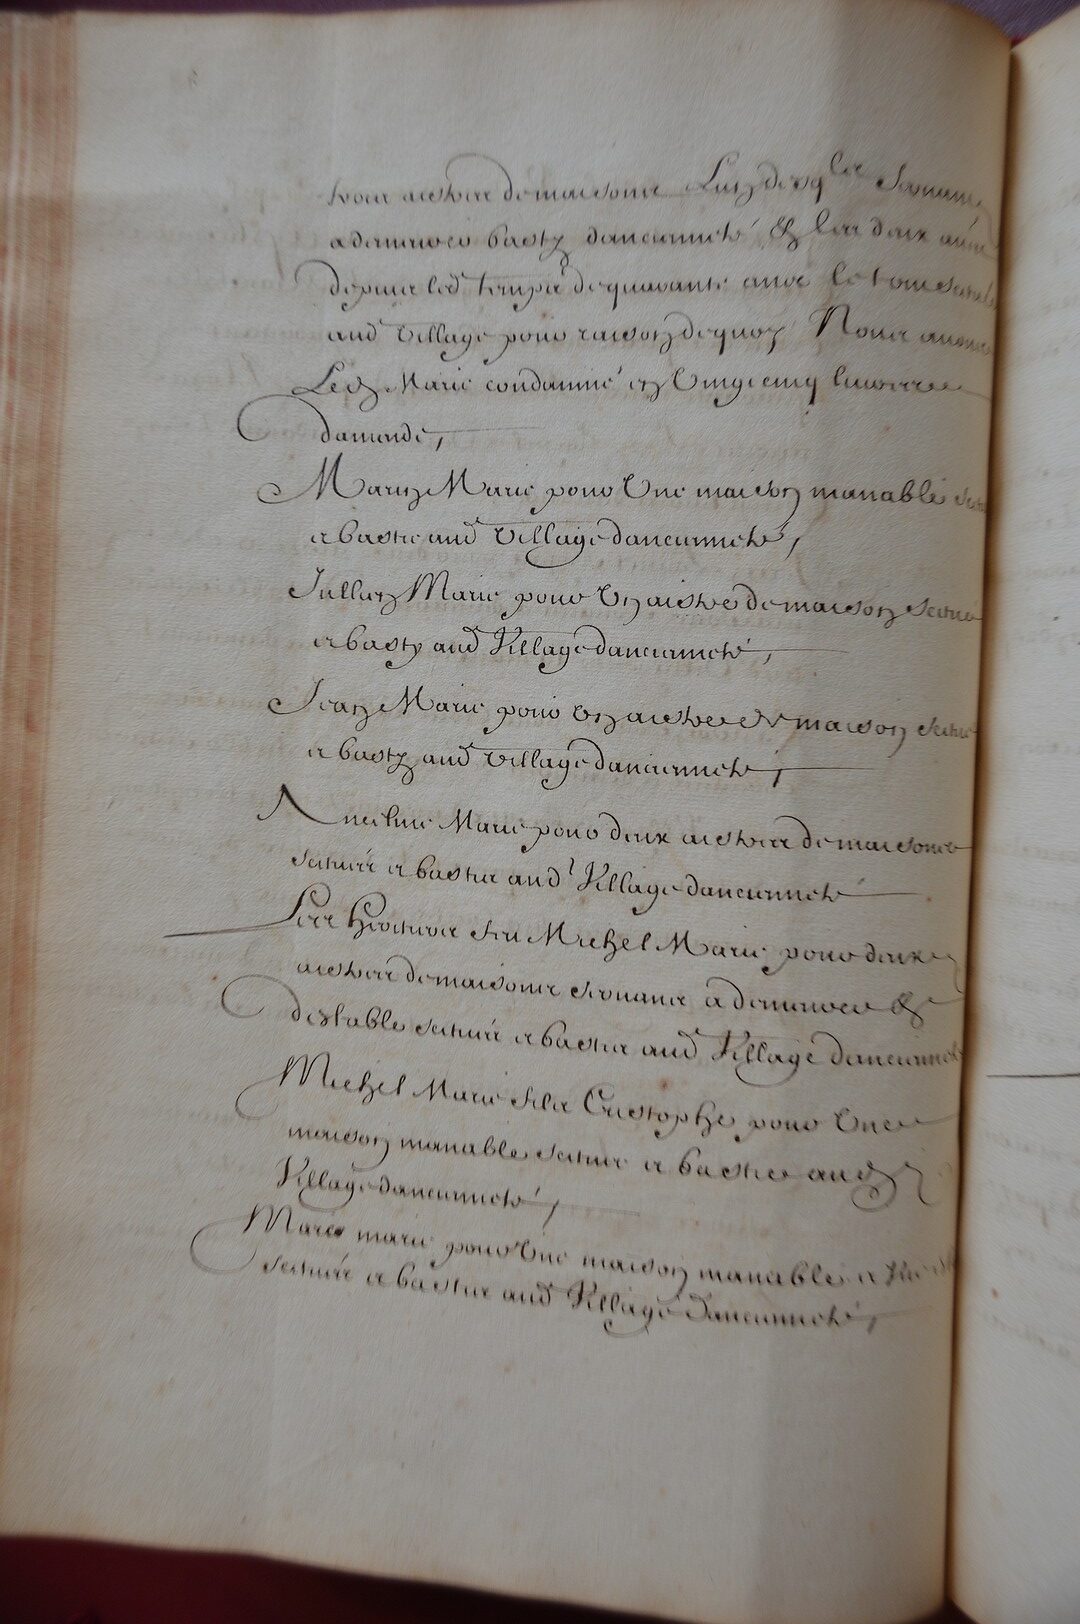 trois aistres de maisons Lun desq.les servant
a demeurer basty dancienneté & les deux autres
depuis led temps de quarante ans le tout scitué
aud Village pour raison dequoy Nous avons
Led Marie condamné en Vingt cinq livres
damende,
Marin Marie pour Une maison manable scituée
et bastie aud Village dancienneté,
Jullien Marie pour Un aistre de maison scitué
et basty aud Village dancienneté,
Jean Marie pour Un aistre de maison scitué
et basty aud Village dancienneté,
Marie pour deux aistres de maisons
scitués et bastis aud Village dancienneté
Les Heritiers feu Michel Marie pour deux
aistres de maisons servants a demeurer &
destable scitués et bastis aud Village dancienneté
Michel Marie fils Cristophe pour Une
maison manable scituée et bastie aud
Village dancienneté,
Marie pour Une maison manable et
scitués et bastis aud Village dancienneté,